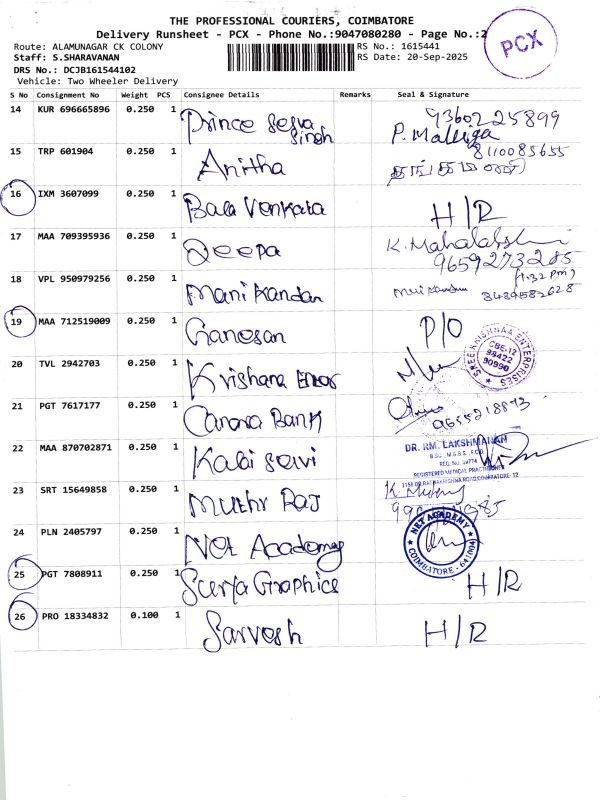 THE PROFESSIONAL COURIERS, COIMBATORE
Delivery Runsheet - PCX - Phone No.:9047080280 - Page No.:2
PCX
Route: ALAMUNAGAR CK COLONY
RS No.: 1615441
Staff: S.SHARAVANAN
RS Date: 20-Sep-2025
DRS No.: DCJB161544102
Vehicle: Two Wheeler Delivery
S No Consignment No Weight PCS Consignee Details Remarks Seal & Signature
14 KUR 696665896 0.250 1 Prince Singh 9360225899
P. Malliga
15 TRP 601904 0.250 1 Anitha 8110085655
தங்கமணி
16 IXM 3607099 0.250 1 Bala Venkata H/R
17 MAA 709395936 0.250 1 Deepa K. Mahalakshmi
9659273285
18 VPL 950979256 0.250 1 Mani Kandan (1.32 pm)
8489582628
19 MAA 712519009 0.250 1 Ganesan P/O
20 TVL 2942703 0.250 1 Krishana
SREE KRISHNAA ENTERPRISES
CBE-12
98422
90990
21 PGT 7617177 0.250 1 Canara Bank 9655218893
22 MAA 870702871 0.250 1 Kalai selvi
DR. RM. LAKSHMANAN
REGISTERED MEDICAL PRACTITIONER
23 SRT 15649858 0.250 1 Muthu Raj
24 PLN 2405797 0.250 1 Net Academy
NET ACADEMY
COIMBATORE - 641004
25 PGT 7808911 0.250 1 Surya Graphics H/R
26 PRO 18334832 0.100 1 Sarvesh H/R